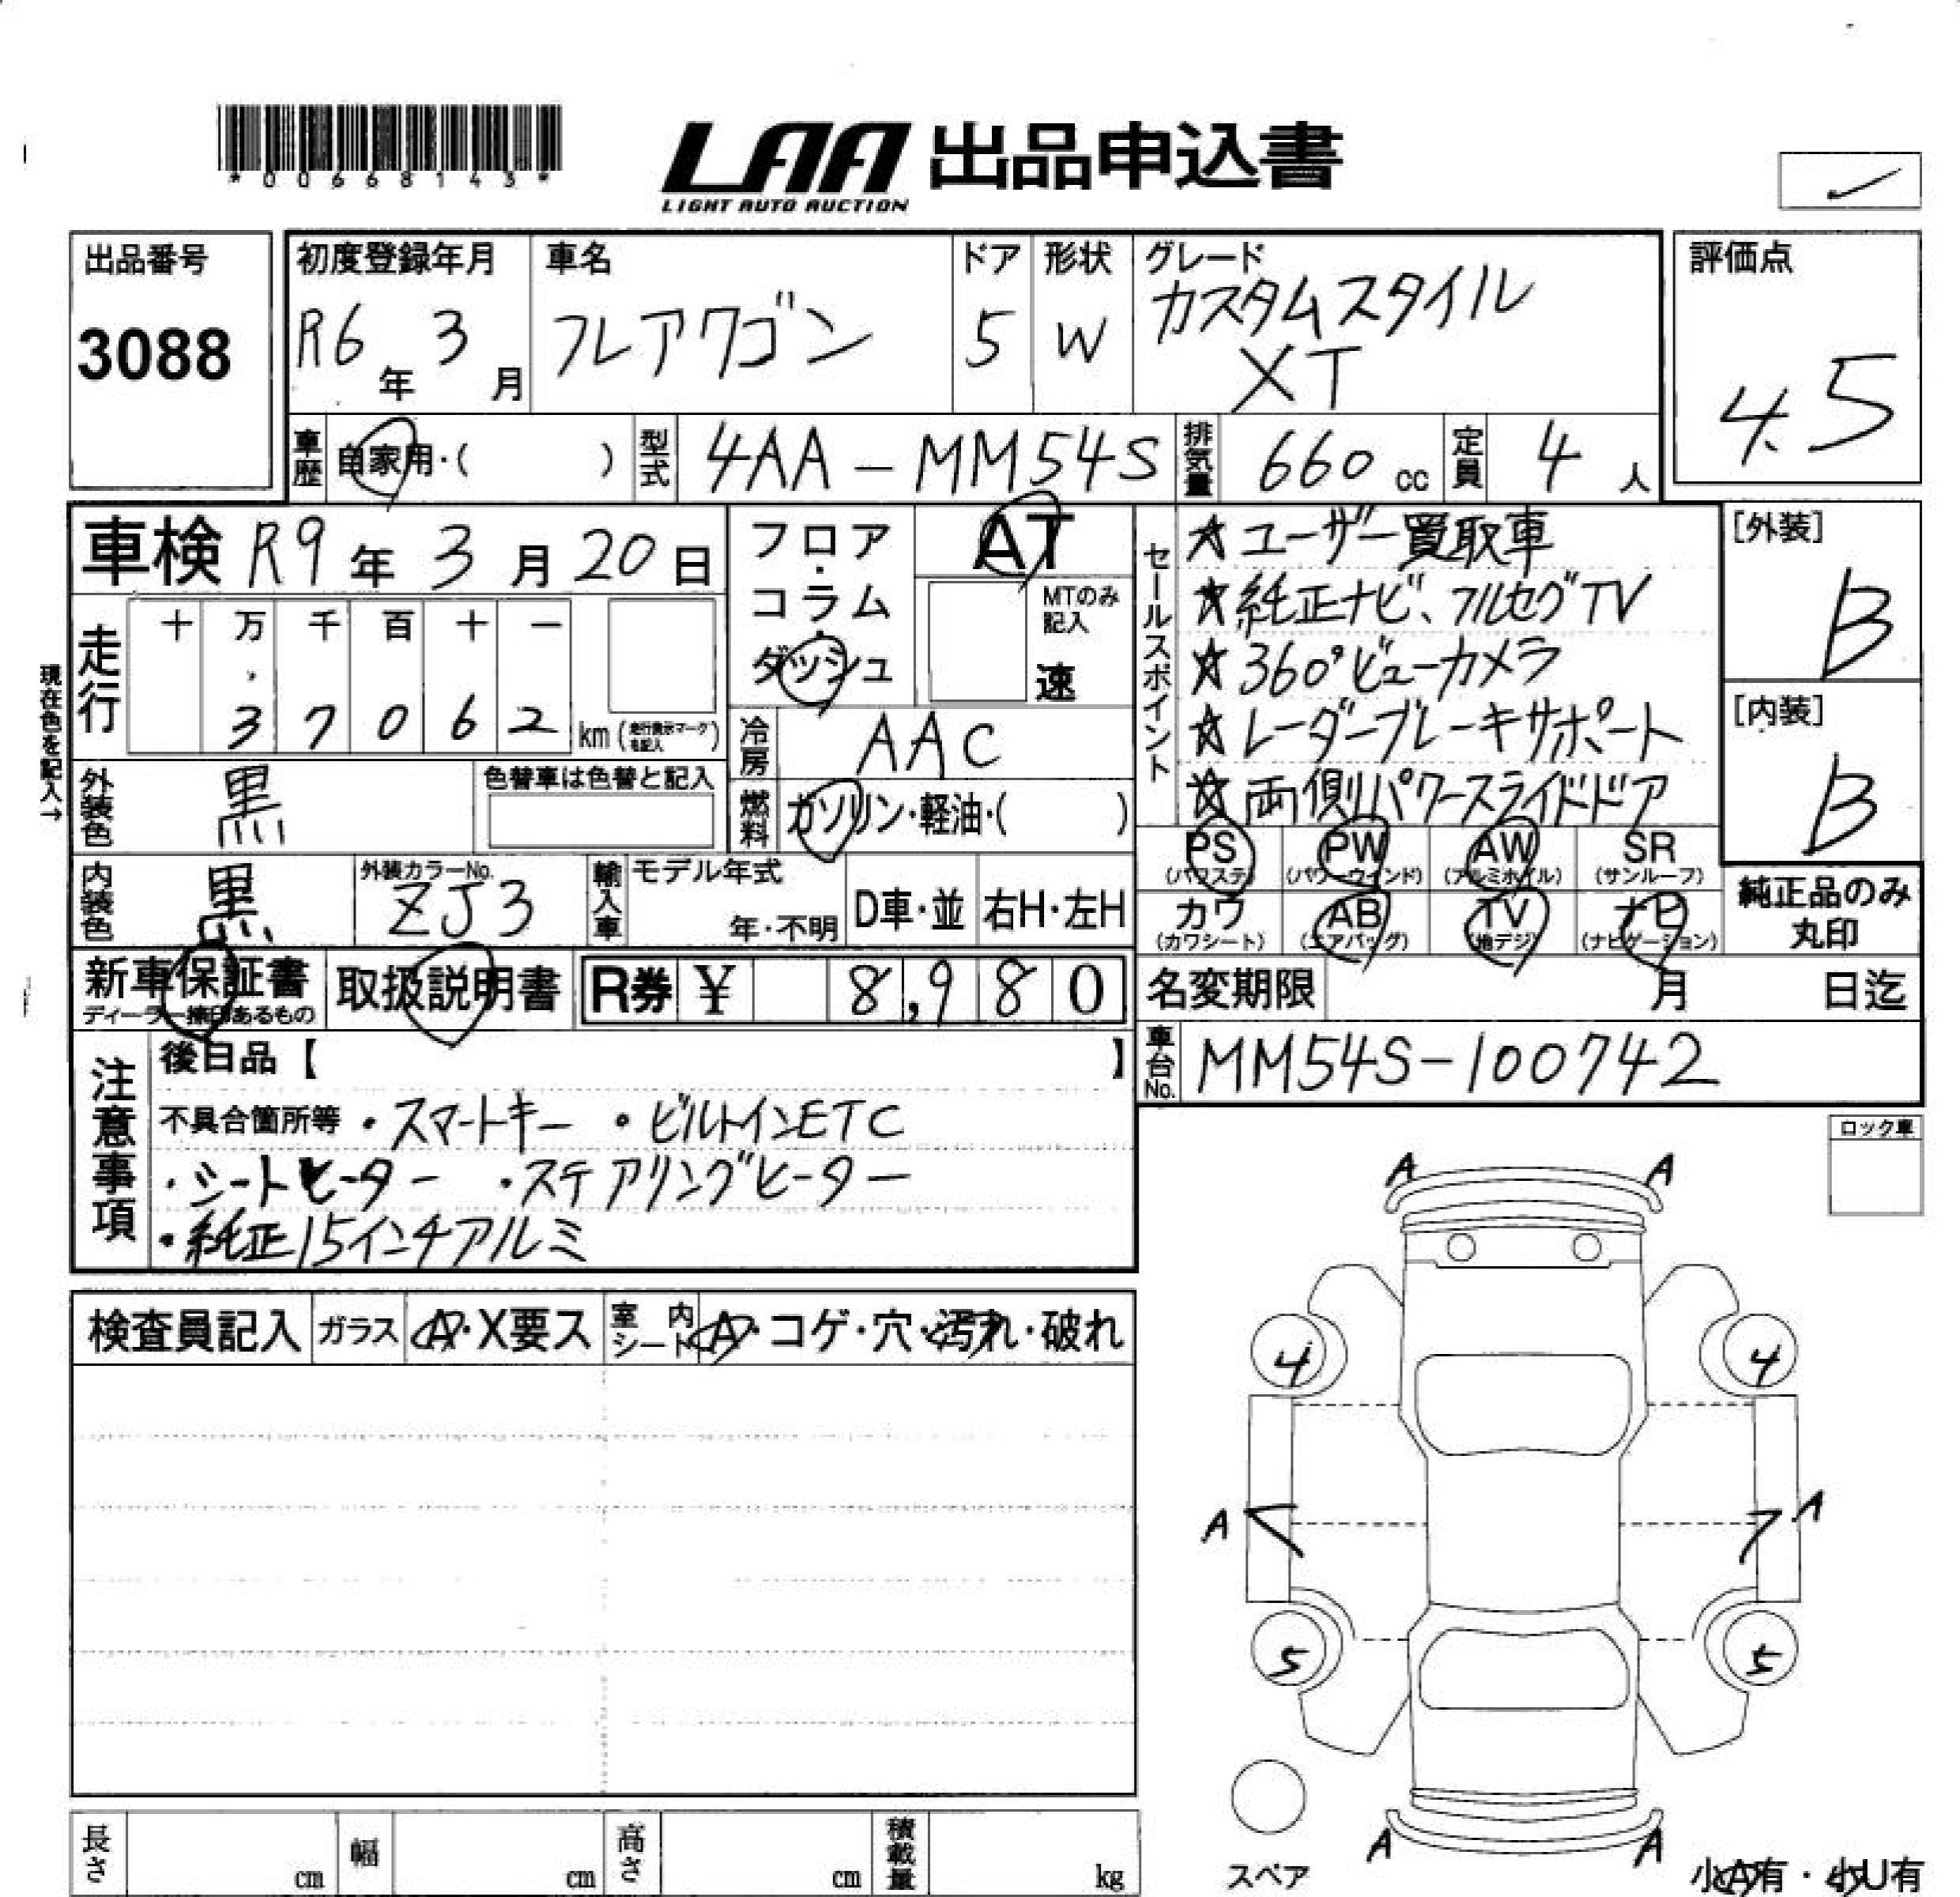 *00668143*
LAA 出品申込書
LIGHT AUTO AUCTION
出品番号
3088
初度登録年月
R6年 3月
車名
フレアワゴン
ドア
5
形状
W
グレード
カスタムスタイル
XT
評価点
4.5
車歴 自家用・( )
型式 4AA-MM54S
排気量 660 cc
定員 4人
車検 R9年 3月 20日
走行
十 万 千 百 十 一
3 7 0 6 2 km
現在色を記入→
フロア・コラム・ダッシュ
AT
MTのみ記入
速
冷房 AAC
燃料 ガソリン・軽油・( )
外装色 黒
色替車は色替と記入
内装色 黒
外装カラーNo.
ZJ3
輸入車
モデル年式
年・不明
D車・並
右H・左H
セールスポイント
☆ユーザー買取車
☆純正ナビ、フルセグTV
☆360°ビューカメラ
☆レーダーブレーキサポート
☆両側パワースライドドア
[外装]
B
[内装]
B
PS (パワステ)
PW (パワーウインド)
AW (アルミホイル)
SR (サンルーフ)
カワ (カワシート)
AB (エアバッグ)
TV (地デジ)
ナビ (ナビゲーション)
純正品のみ
丸印
新車保証書
ディーラー捺印あるもの
取扱説明書
R券 ¥ 8,980
名変期限 月 日迄
車台No. MM54S-100742
注意事項
後日品【 】
不具合箇所等 ・スマートキー ・ビルトインETC
・シートヒーター ・ステアリングヒーター
・純正15インチアルミ
ロック車
検査員記入
ガラス A・X要ス
室内シート A・コゲ・穴・汚れ・破れ
A A
4 4
A A
5 5
A A
スペア
小A有・小U有
長さ cm
幅 cm
高さ cm
積載量 kg